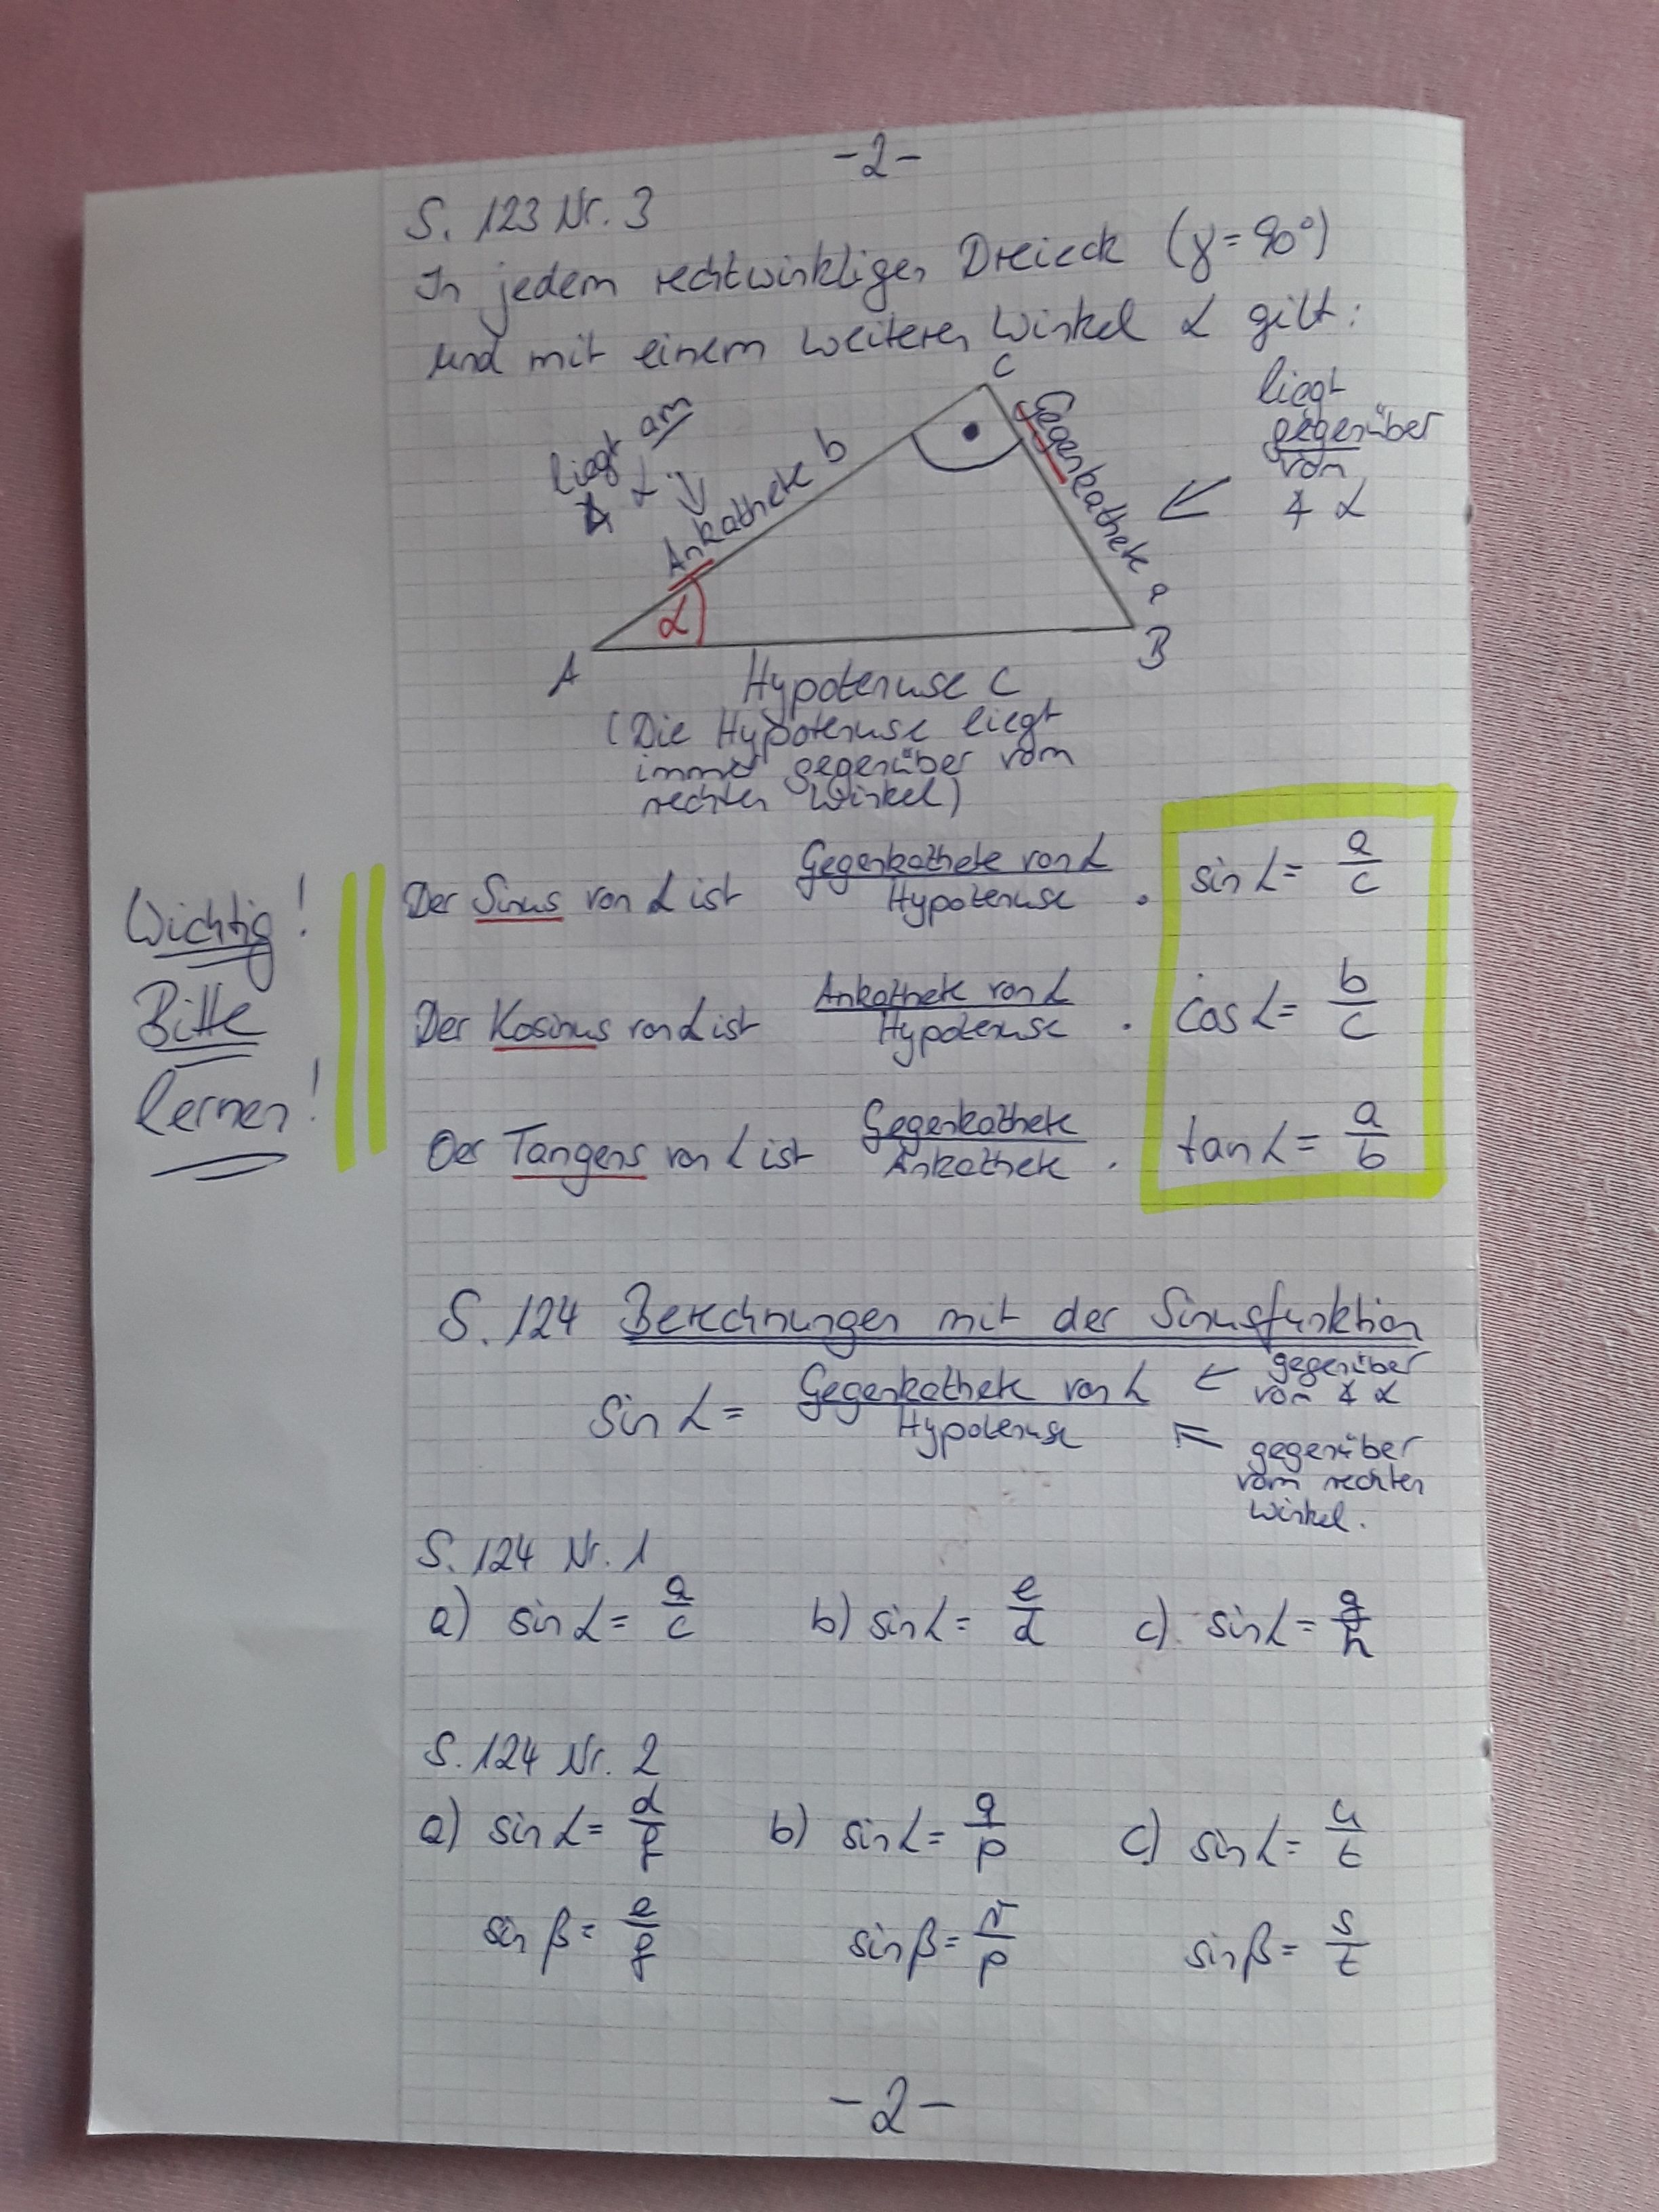 -2-
S. 123 Nr. 3
In jedem rechtwinkligen Dreieck (γ = 90°)
und mit einem weiteren Winkel α gilt:
C
liegt am
∡ α
Ankathete b
Gegenkathete a
liegt
gegenüber
vom
∡ α
α
A
B
Hypotenuse c
(Die Hypotenuse liegt
immer gegenüber vom
rechten Winkel)
Wichtig!
Bitte
lernen!
Der Sinus von α ist Gegenkathete von α / Hypotenuse . sin α = a/c
Der Kosinus von α ist Ankathete von α / Hypotenuse . cos α = b/c
Der Tangens von α ist Gegenkathete / Ankathete . tan α = a/b
S. 124 Berechnungen mit der Sinusfunktion
sin α = Gegenkathete von α / Hypotenuse
← gegenüber
vom ∡ α
gegenüber
vom rechten
Winkel.
S. 124 Nr. 1
a) sin α = a/c b) sin α = e/d c) sin α = g/h
S. 124 Nr. 2
a) sin α = d/f b) sin α = q/p c) sin α = u/t
sin β = e/f sin β = r/p sin β = s/t
-2-